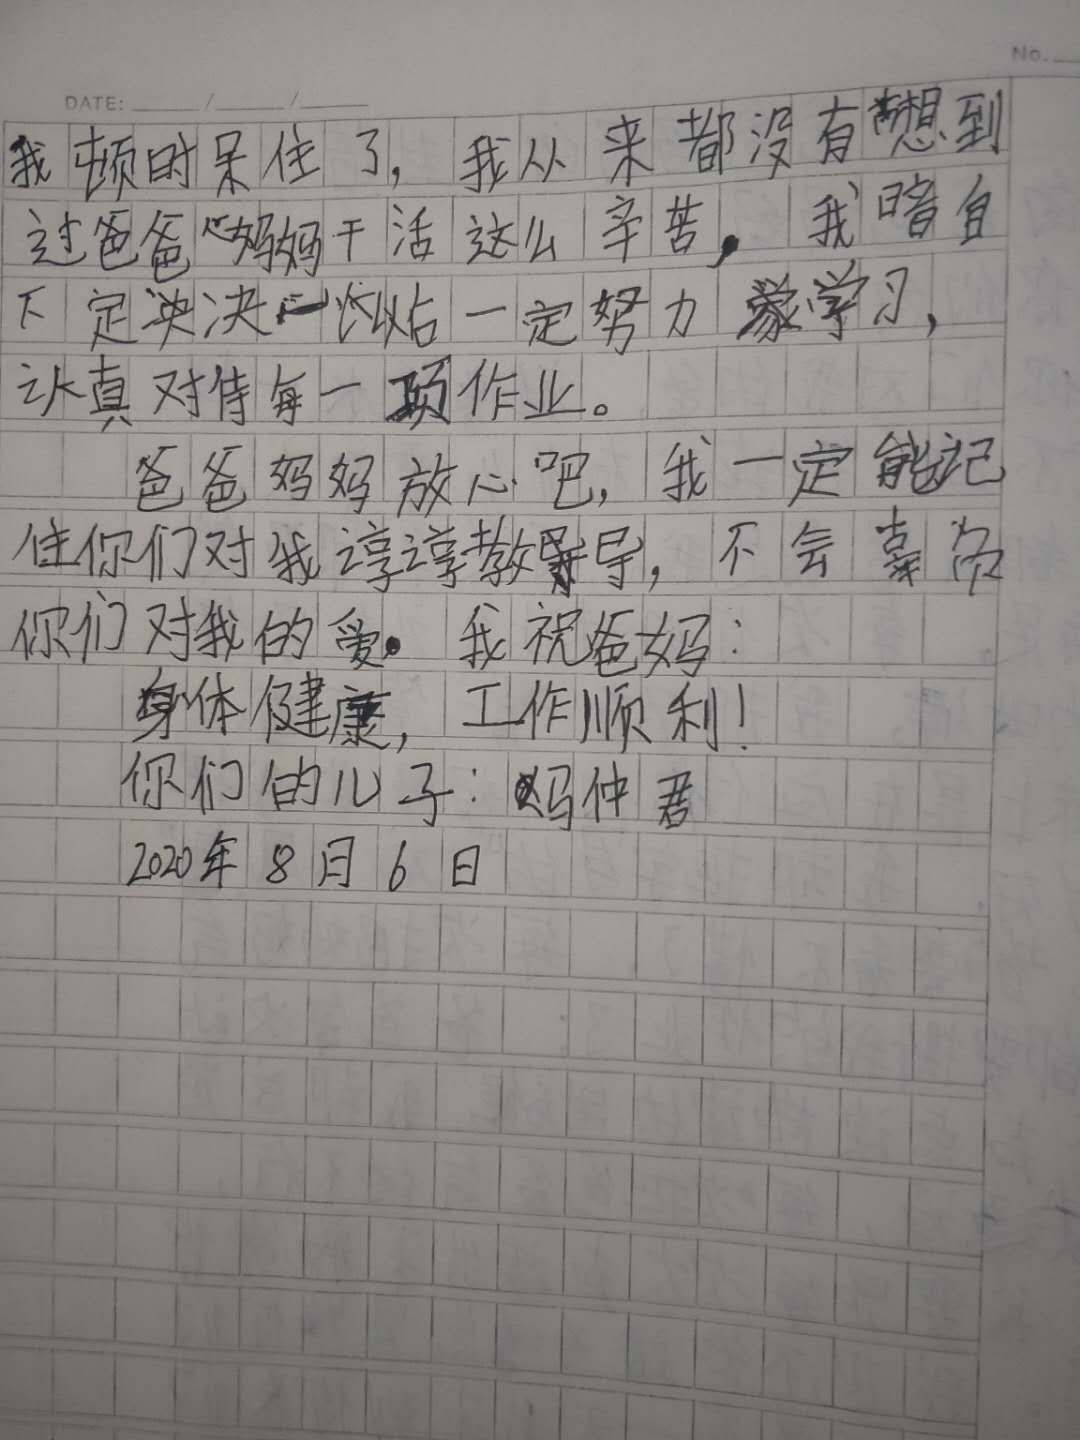 No.
DATE: / /
我顿时呆住了，我从来都没有想到
过爸爸妈妈干活这么辛苦，我暗自
下定决一定努力学习，
认真对待每一项作业。
爸爸妈妈放心吧，我一定能记
住你们对我谆谆教导，不会辜
你们对我的爱。我祝爸妈：
身体健康，工作顺利！
你们的儿子：仲君
2020年8月6日